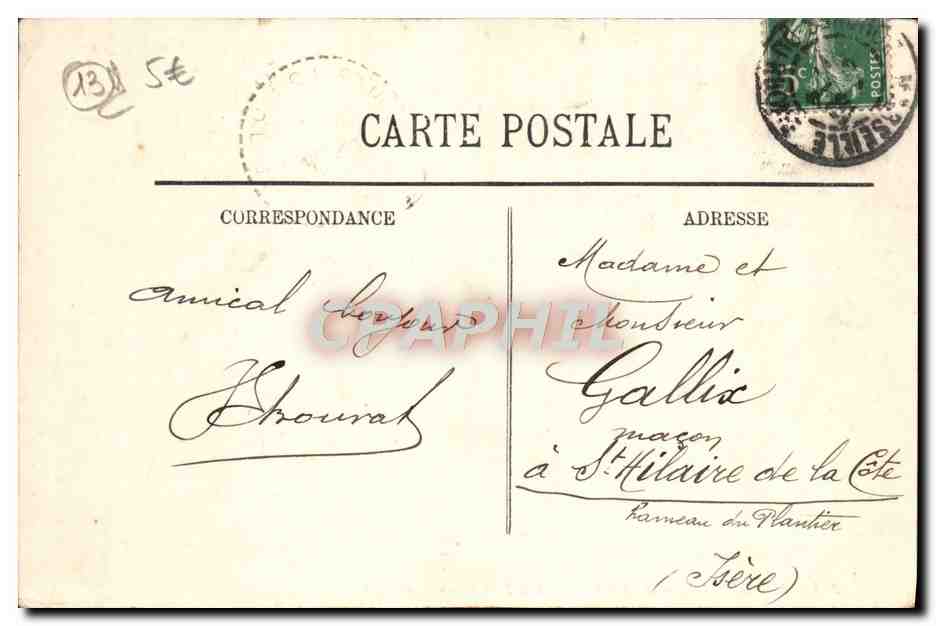 13
5€
5c
POSTES
CARTE POSTALE
CORRESPONDANCE
ADRESSE
amical bonjour
CPAPHIL
Madame et
Monsieur
Gallix
maçon
à St. Hilaire de la Côte
hameau du Plantier
(Isère)